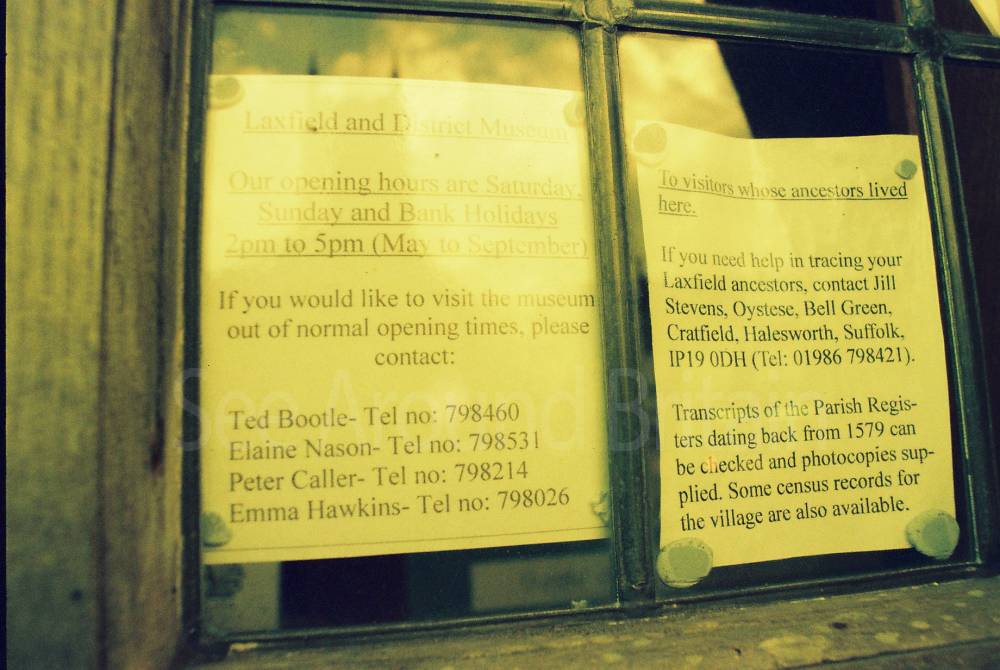 Laxfield and District Museum
Our opening hours are Saturday,
Sunday and Bank Holidays
2pm to 5pm (May to September)
If you would like to visit the museum
out of normal opening times, please
contact:
Ted Bootle- Tel no: 798460
Elaine Nason- Tel no: 798531
Peter Caller- Tel no: 798214
Emma Hawkins- Tel no: 798026
To visitors whose ancestors lived
here.
If you need help in tracing your
Laxfield ancestors, contact Jill
Stevens, Oystese, Bell Green,
Cratfield, Halesworth, Suffolk,
IP19 0DH (Tel: 01986 798421).
Transcripts of the Parish Regis-
ters dating back from 1579 can
be checked and photocopies sup-
plied. Some census records for
the village are also available.
See Around Britain